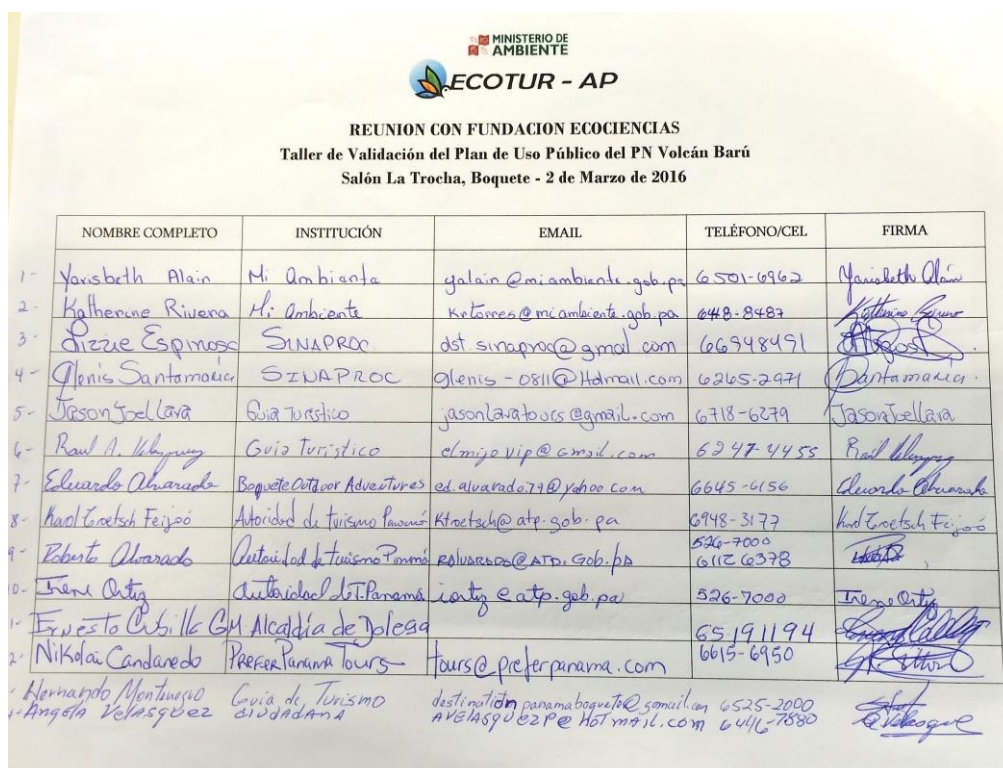 MINISTERIO DE
AMBIENTE
ECOTUR - AP
REUNION CON FUNDACION ECOCIENCIAS
Taller de Validación del Plan de Uso Público del PN Volcán Barú
Salón La Trocha, Boquete - 2 de Marzo de 2016
NOMBRE COMPLETO INSTITUCIÓN EMAIL TELÉFONO/CEL FIRMA
1- Yarisbeth Alain Mi Ambiante yalain@miambiente.gob.pa 6501-6962 Yarisbeth Alain
2- Katherine Rivera Mi Ambiente krtorres@miambiente.gob.pa 648-8487
3- Lizzie Espinosa SINAPROC dst.sinaproc@gmal.com 66948491
4- Glenis Santamaria SINAPROC glenis-0811@Hotmail.com 6265-2971 Santamaria.
5- Jason Joel Lara Guia Turistico jasonlaratours@gmail.com 6718-6279 Jason Joel Lara
6- Raul A. Velasquez Guia Turistico elmijovip@gmail.com 6247-4455 Raul
7- Eduardo Alvarado Boquete Outdoor Adventures ed.alvarado.79@yahoo.com 6645-6156 Eduardo Alvarado
8- Karol Troetsch Feijoó Autoridad de turismo Panamá Ktroetsch@atp.gob.pa 6948-3177 Karol Troetsch Feijoó
9- Roberto Alvarado Autoridad de turismo Panamá RALVARADO@ATP.Gob.pa 526-7000
61126378
0- Irene Ortiz Autoridad de T. Panamá iortiz@atp.gob.pa 526-7000 Irene Ortiz
1- Ernesto Cubilla GM Alcaldía de Dolega 65191194
2- Nikolai Candanedo Prefer Panama Tours tours@preferpanama.com 6615-6950
- Hernando Montenegro Guia de Turismo destinationpanamaboquete@gmail.com 6525-2000
- Angela Velasquez CIUDADANA AVELASQUEZP@HoTmAil.com 6446-7880